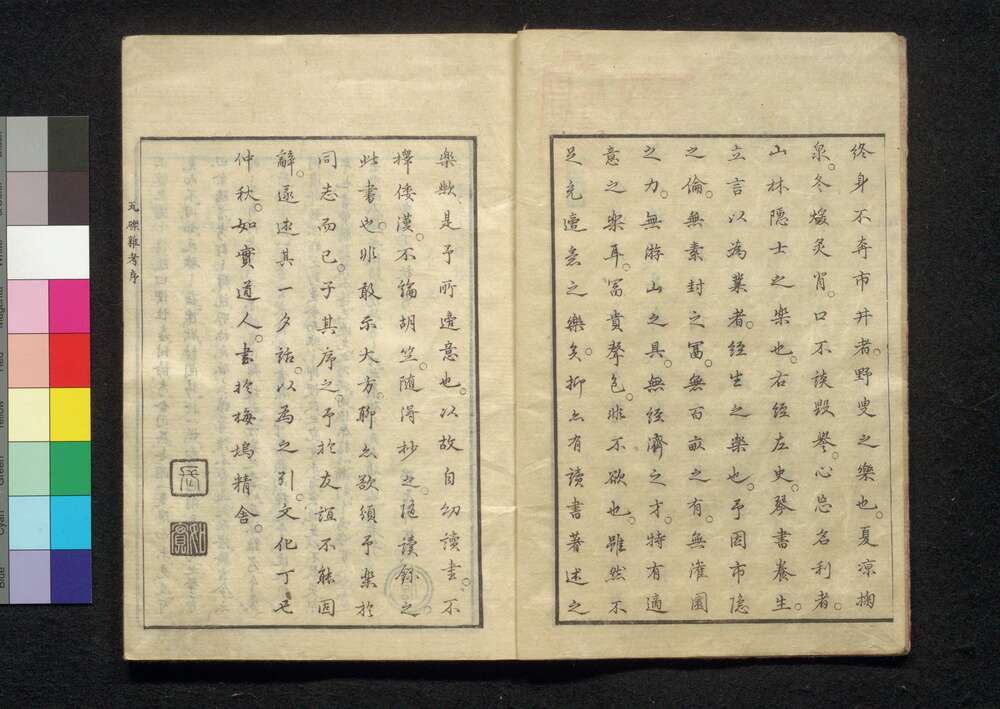 終身不奔市井者。野叟之樂也。夏凉掬
泉。冬煖炙背。口不談毀譽。心忘名利者。
山林隠士之楽也。右經左史。琴書養生。
立言以為業者。經生之楽也。予固市隠
之倫。無素封之冨。無百畝之有。無灌園
之力。無游山之具。無経濟之才。特有適
意之楽耳。冨貴聲色。非不欲也。雖然不
足充適意之樂矣。抑亦有読書著述之
楽歟。是予所適意也。以故自幼讀書。不
擇倭漢。不論胡竺。随得抄之。随讀録之
此書也。非敢示大方。聊亦欲頒予楽於
同志而已。子其序之。予於友誼不能固
辭。遂述其一夕話。以為之引。文化丁丑
仲秋。如實道人。書於梅塢精舎。
瓦礫雜考序